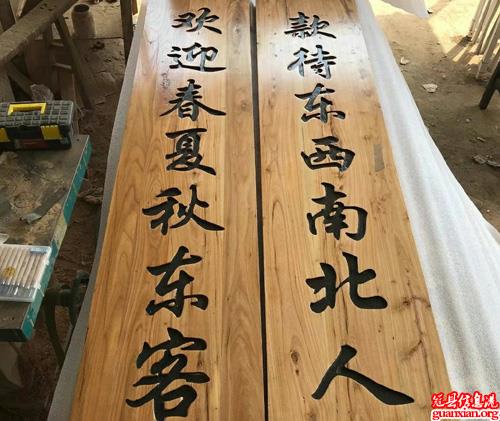 款待东西南北人
欢迎春夏秋东客
冠县信息港
guanxian.org